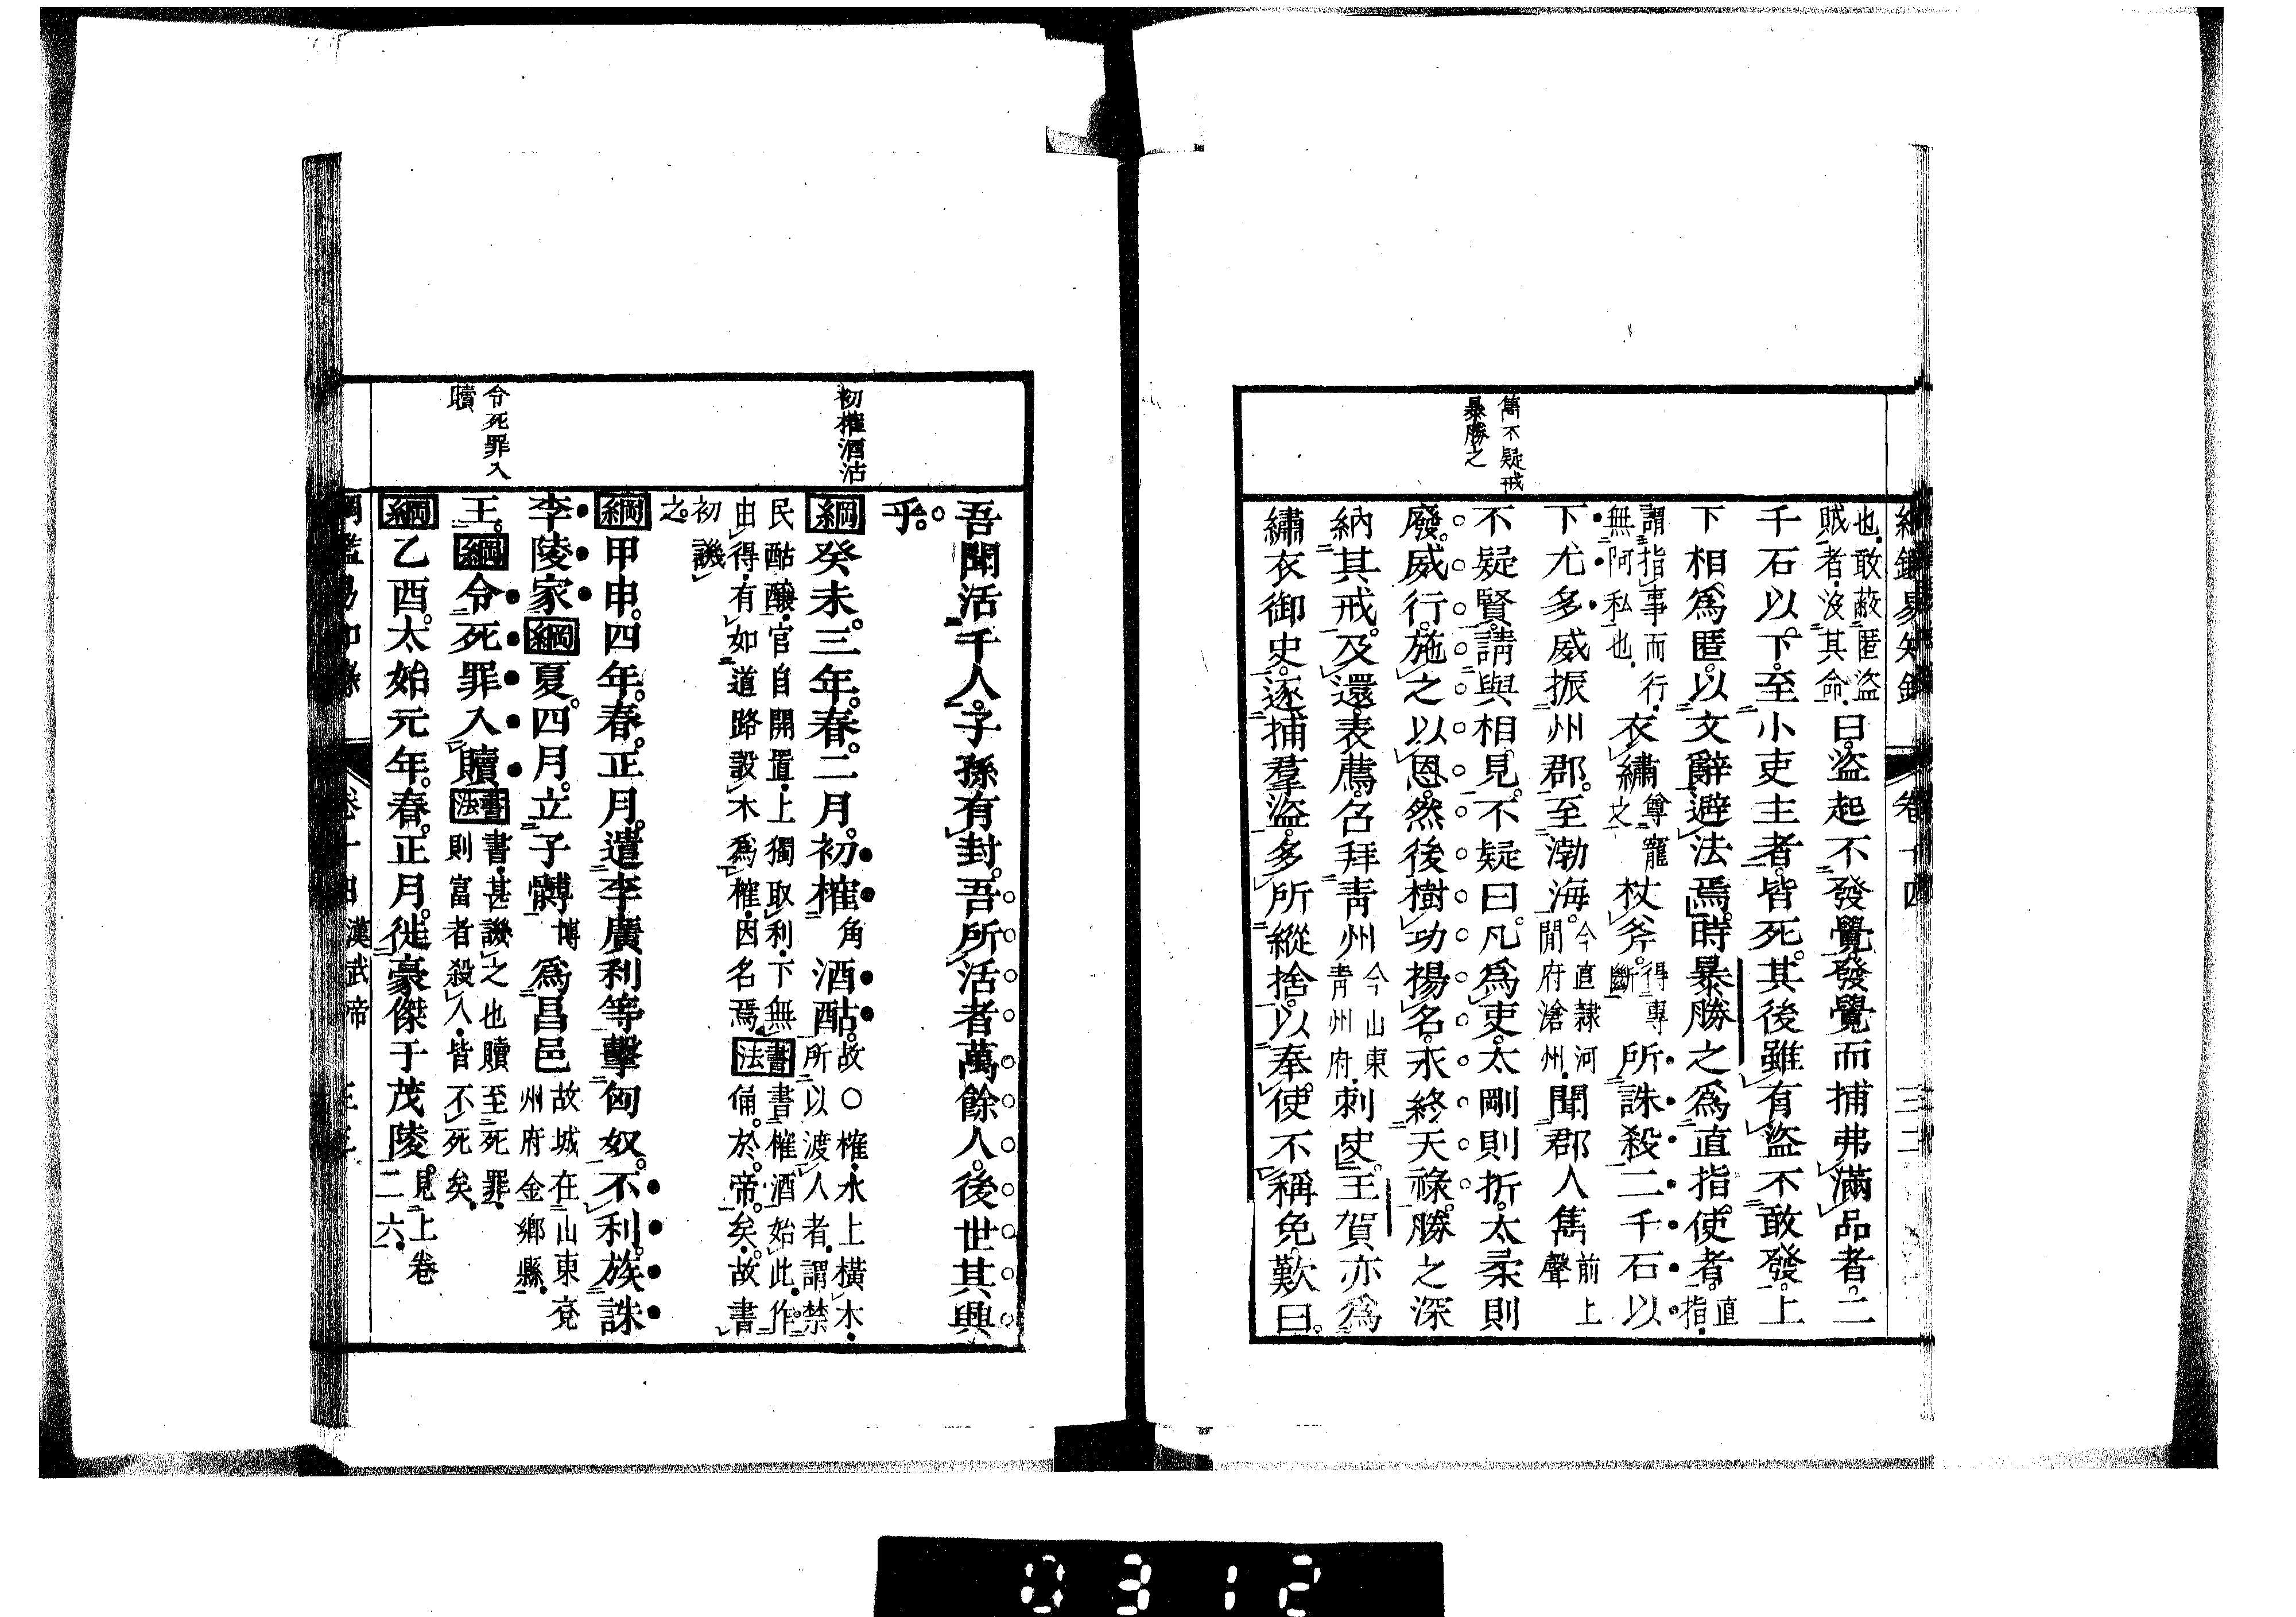 雋不疑戒
暴勝之
也。敢蔽匿盜
賊者。沒其命。曰。盜起不發覺。發覺而捕弗滿品者。二
千石以下。至小吏主者。皆死。其後雖有盜不敢發。上
下相爲匿。以文辭避法焉。時暴勝之爲直指使者。直指。
謂指事而行。無阿私也。衣繡尊寵之杖斧。得專斷所誅殺二千石以
下尤多。威振州郡。至渤海。今直隸河閒府滄州。聞郡人雋前上聲
不疑賢。請與相見。不疑曰。凡爲吏。太剛則折。太柔則
廢。威行。施之以恩。然後樹功揚名。永終天祿。勝之深
納其戒。及還。表薦。召拜靑州今山東靑州府。刺史。王賀亦爲
繡衣御史。逐捕羣盜。多所縱捨。以奉使不稱免。歎曰。
卷十四
初榷酒沽
令死罪入
贖
吾聞活千人。子孫有封。吾所活者萬餘人。後世其興
乎。
綱癸未。三年。春。二月。初榷角酒酤。故○榷。水上橫木。所以渡人者。謂禁
民酤釀。官自開置。上獨取利。下無由得。有如道路設木爲榷。因名焉。書法書榷酒始此。作俑。於。帝。矣。故書
初譏之。
綱甲申。四年。春。正月。遣李廣利等擊匈奴。不利。族誅
李陵家。綱夏。四月。立子髆博爲昌邑故城在山東兗州府金鄉縣。
王。綱令死罪入贖。書法書。甚譏之也。贖至死罪。則富者殺人。皆不死矣。
綱乙酉。太始元年。春。正月。徙豪傑于茂陵。見上卷二六。
綱鑑易知錄 卷十四 漢武帝